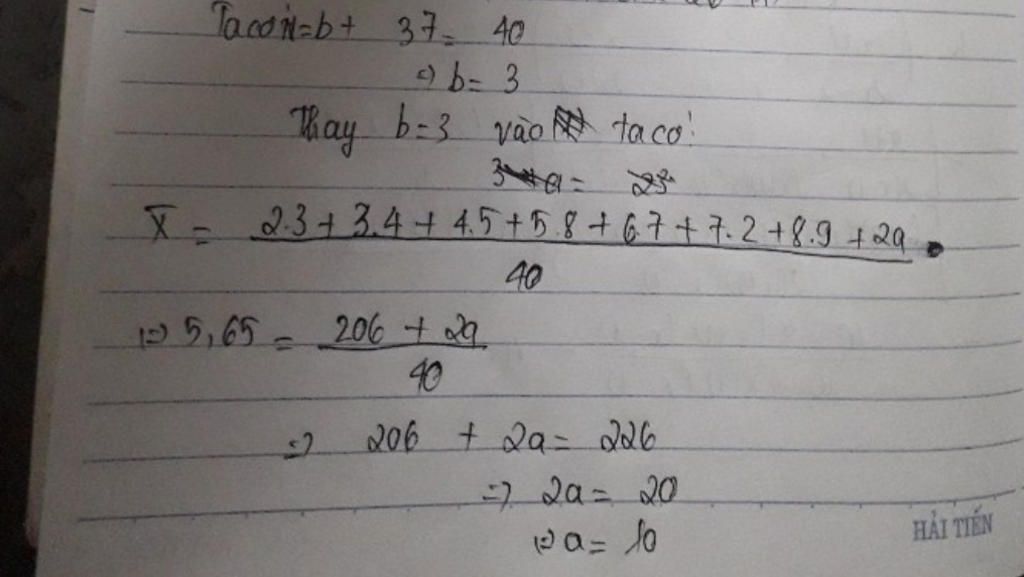 Ta có N = b + 37 = 40
=> b = 3
Thay b = 3 vào ta có:
a =
X̅ = 2.3 + 3.4 + 4.5 + 5.8 + 6.7 + 7.2 + 8.9 + 2a
40
=> 5,65 = 206 + 2a
40
=> 206 + 2a = 226
=> 2a = 20
=> a = 10
HẢI TIẾN